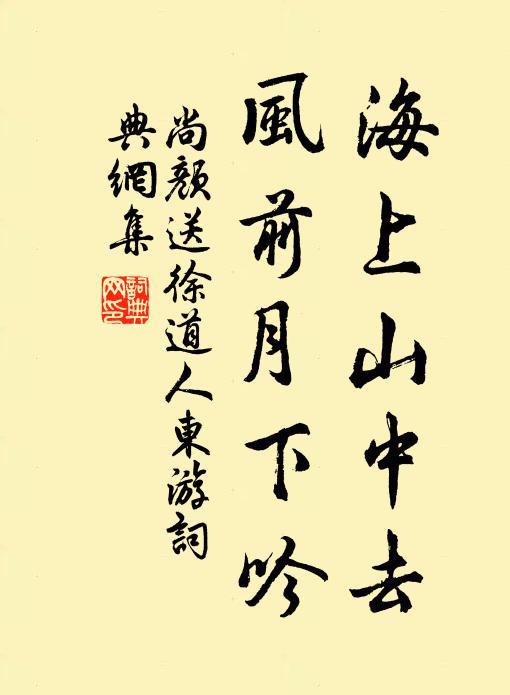 海上山中去
風前月下吟
尚顏送徐道人東游詞
典網集
詞典
网印